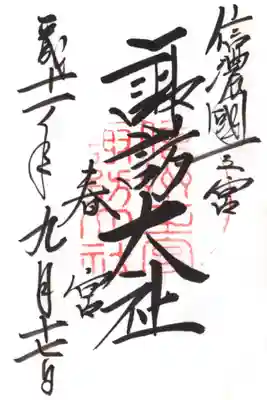 信濃國一之宮
諏訪大社
春宮
平成十一年九月十七日